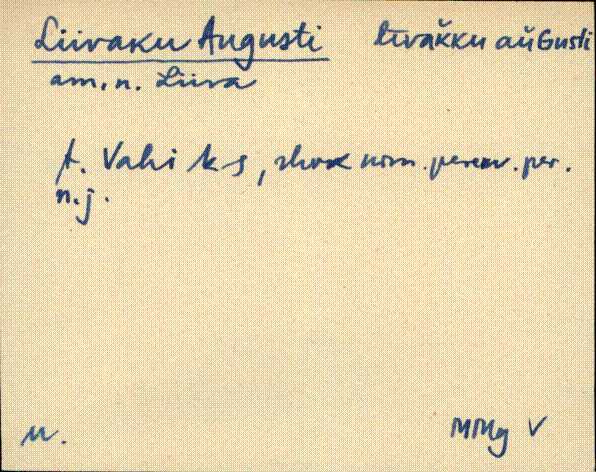 Liivaku Augusti līvăkku aŭGusti
am. n. Liiva
t. Vahi ks, nim. perem. per.
n. j.
M. MMg V